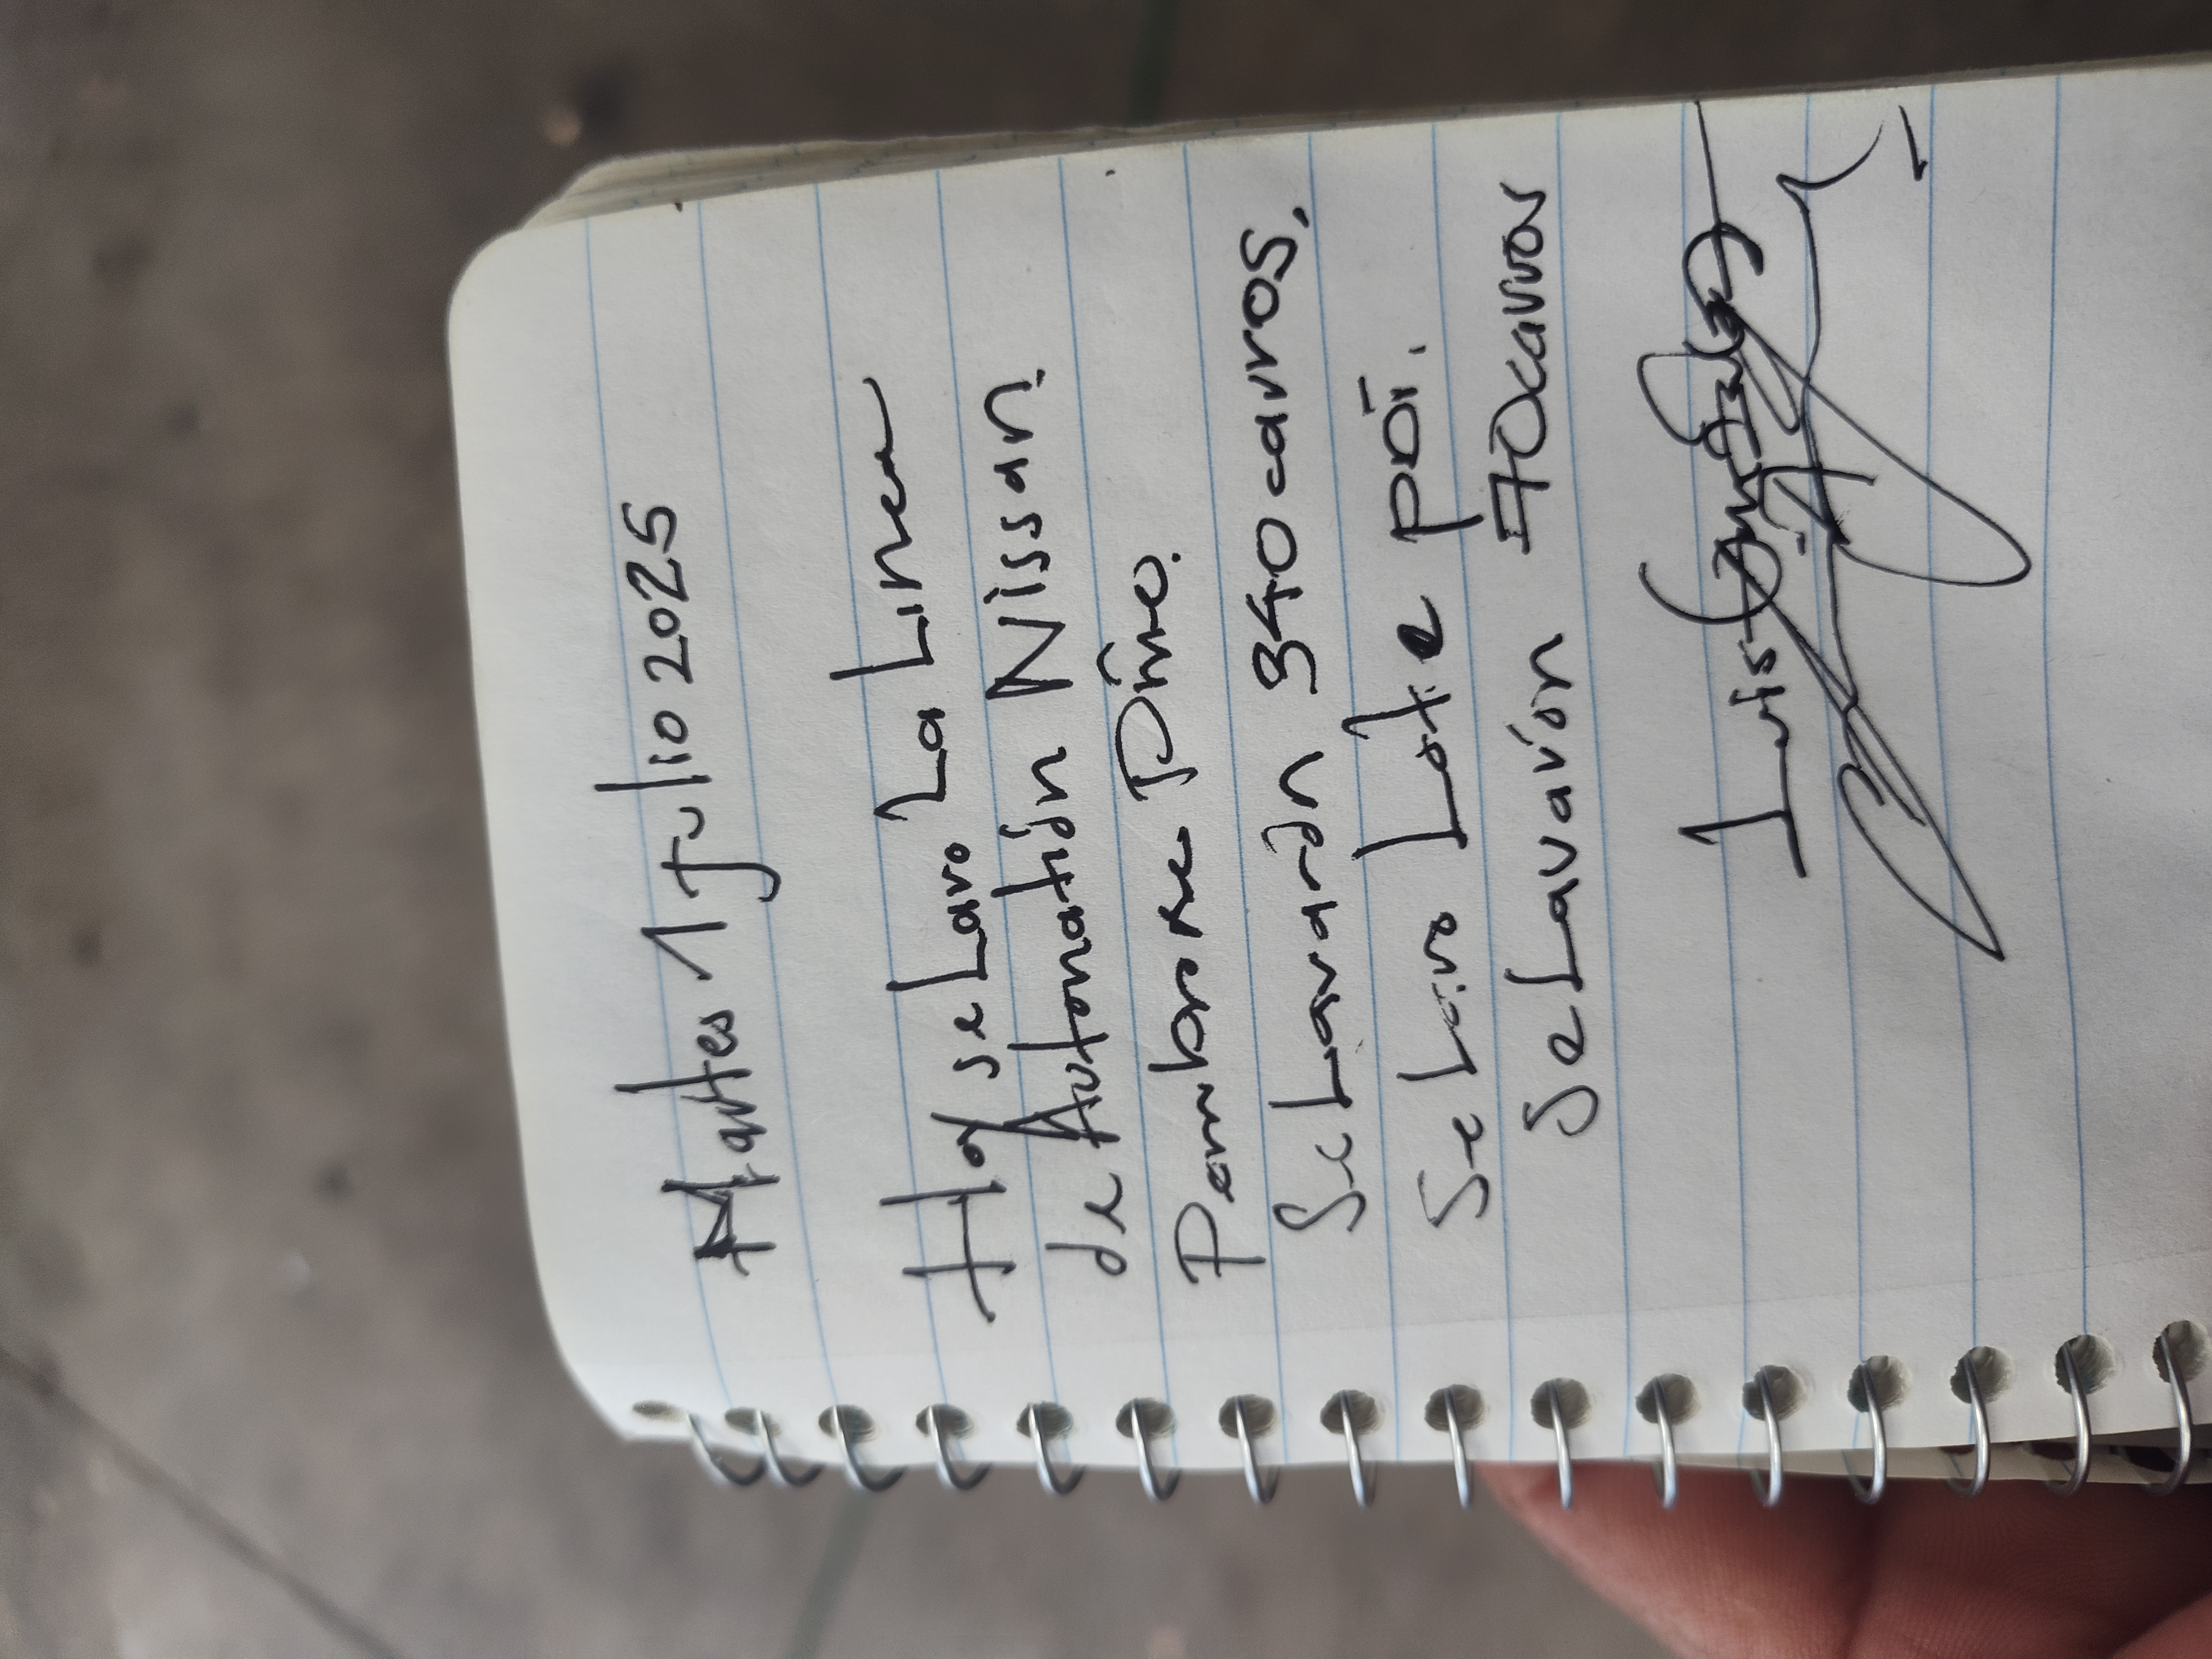 Martes 1 Julio 2025
Hoy se Lavo La Linea
de Automation Nissan.
Pembroke Pine.
Se Lavarón 340 carros,
Se Lavo Lote poi.
Se Lavarón 70 carros
Luis González